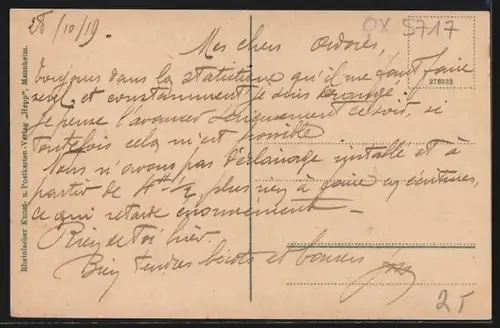 28/10/19.
OX 5717
Mes chers adorés,
Toujours dans la statistique qu'il me faut faire
seul et constamment je suis dérangé.
Je pense l'avancer sérieusement ce soir, si
toutefois cela m'est possible.
Nous n'avons pas l'éclairage installé et à
partir de 4h 1/2 plus rien à faire en écritures,
ce qui retarde énormément.
Rien de toi hier.
Bien tendres bécots et bonsoir
25
Rheinischer Kunst- u. Postkarten-Verlag „Hepp", Mannheim.